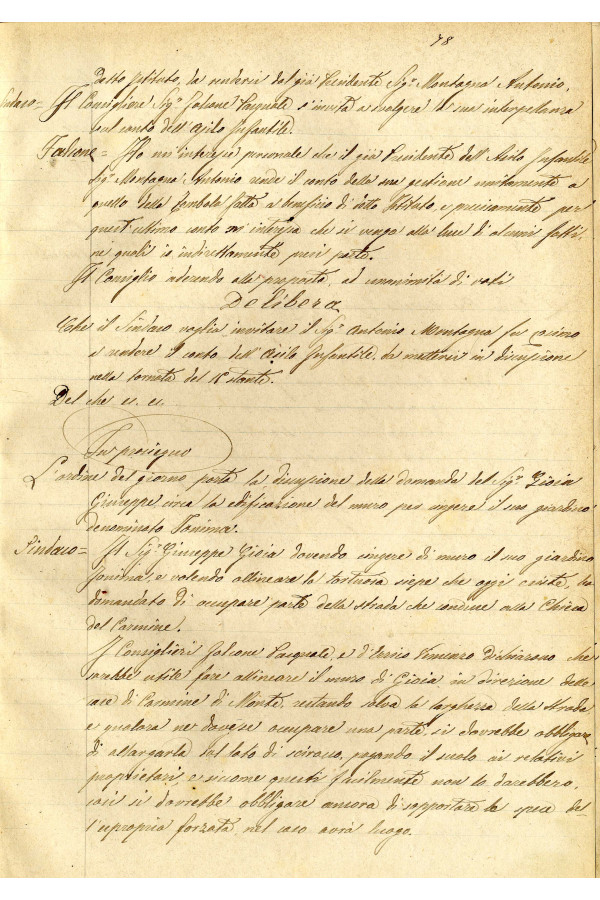 78
detto Istituto, da rendersi dal già Presidente Sigr Montagna Antonio.
Sindaco = Il Consigliere Sigr Falcone Pasquale s'invita a svolgere la sua interpellanza
sul conto dell'Asilo Infantile.
Falcone = Ho un'interesse personale che il già Presidente dell'Asilo Infantile
Sigr Montagna Antonio renda il conto della sua gestione unitamente a
quello della tombola fatta a beneficio di detto Istituto, e precisamente per
quest'ultimo conto m'interessa che si venga alla luce di alcuni fatti,
nei quali io indirettamente presi parte.
Il Consiglio aderendo alla proposta, ad unanimità di voti
Delibera
Che il Sindaco voglia invitare il Sigr Antonio Montagna fu Cosimo
a rendere il conto dell'Asilo Infantile, da mettersi in discussione
nella tornata del stante.
Del che es. es.
In proseguo
L'ordine del giorno porta la discussione della domanda del Sigr Gioia
Giuseppe circa la edificazione del muro per cingere il suo giardino
denominato Tonima.
Sindaco = Il Sigr Giuseppe Gioia dovendo cingere di muro il suo giardino
Tonima, e volendo allineare la tortuosa siepe che oggi esiste, ha
domandato di occupare parte della strada che conduce alla Chiesa
del Carmine.
I Consiglieri Falcone Pasquale, e d'Errico Vincenzo dichiarano che
sarebbe utile fare allineare il muro di Gioia in direzione delle
case di Carmine di Monte, restando salva la larghezza della strada
e qualora ne dovesse occupare una parte, si dovrebbe obbligare
di allargarla sul lato di scirocco, pagando il suolo ai relativi
proprietari, e siccome questi facilmente non lo darebbero,
così si dovrebbe obbligare ancora di sopportare le spese del-
l'espropria forzata, nel caso avrà luogo.